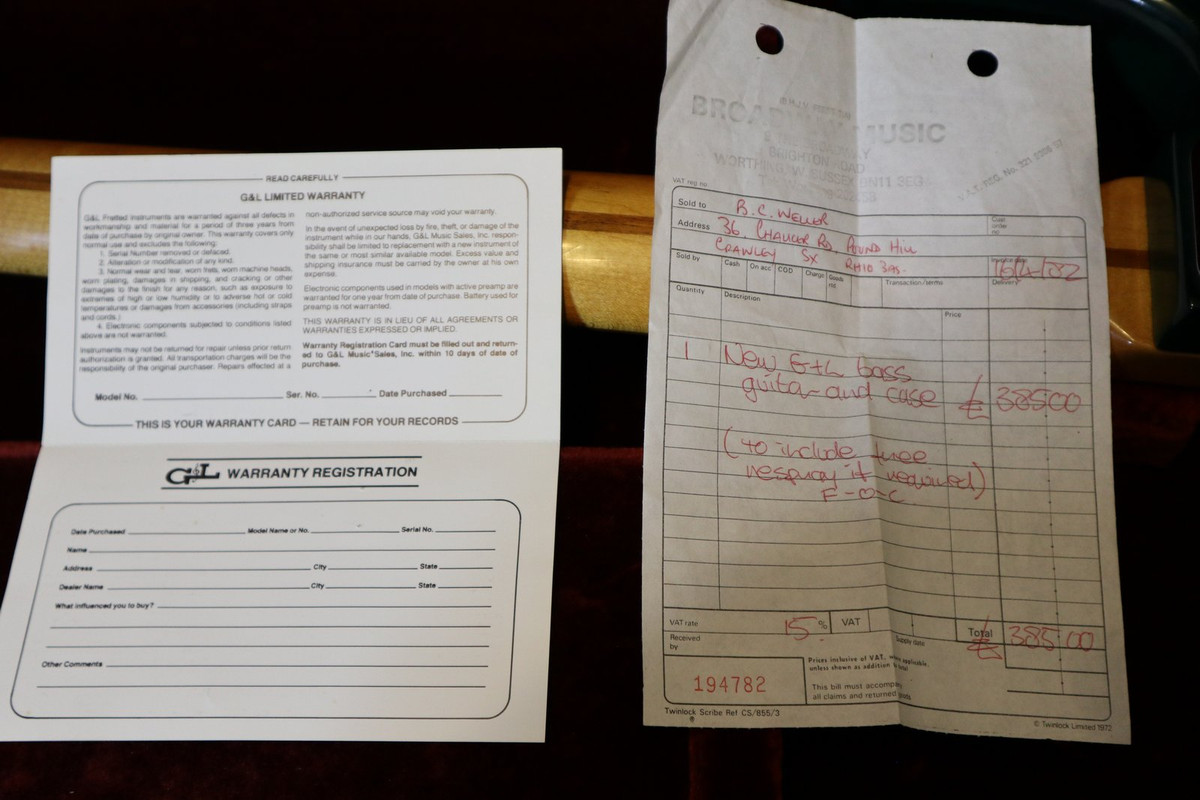 READ CAREFULLY
G&L LIMITED WARRANTY
G&L Fretted Instruments are warranted against all defects in
workmanship and material for a period of three years from
date of purchase by original owner. This warranty covers only
normal use and excludes the following:
1. Serial Number removed or defaced.
2. Alteration or modification of any kind.
3. Normal wear and tear, worn frets, worn machine heads,
worn plating, damages in shipping, and cracking or other
damages to the finish for any reason, such as exposure to
extremes of high or low humidity or to adverse hot or cold
temperatures or damages from accessories (including straps
and cords.)
4. Electronic components subjected to conditions listed
above are not warranted.
Instruments may not be returned for repair unless prior return
authorization is granted. All transportation charges will be the
responsibility of the original purchaser. Repairs effected at a
non-authorized service source may void your warranty.
In the event of unexpected loss by fire, theft, or damage of the
instrument while in our hands, G&L Music Sales, Inc. respon-
sibility shall be limited to replacement with a new instrument of
the same or most similar available model. Excess value and
shipping insurance must be carried by the owner at his own
expense.
Electronic components used in models with active preamp are
warranted for one year from date of purchase. Battery used for
preamp is not warranted.
THIS WARRANTY IS IN LIEU OF ALL AGREEMENTS OR
WARRANTIES EXPRESSED OR IMPLIED.
Warranty Registration Card must be filled out and return-
ed to G&L Music Sales, Inc. within 10 days of date of
purchase.
Model No. Ser. No. Date Purchased
THIS IS YOUR WARRANTY CARD — RETAIN FOR YOUR RECORDS
G&L WARRANTY REGISTRATION
Date Purchased Model Name or No. Serial No.
Name
Address City State
Dealer Name City State
What influenced you to buy?
Other Comments
BROADWAY MUSIC
BRIGHTON ROAD
WORTHING, W. SUSSEX BN11 3EG
VAT reg no
Sold to B. C. WELLER
Address 36 CHAUCER RD POUND HILL
CRAWLEY SX RH10 3AS.
Cust order no
16/4/82
Sold by Cash On acc COD Charge Goods retd Transaction/terms Delivery
Quantity Description Price
1 New G+L bass
guitar and case £ 385 00
(to include free
respray if required)
F-O-C
VAT rate 15 % VAT Total £ 385.00
Received by
Supply date
Prices inclusive of VAT, where applicable,
unless shown as addition to total
194782
This bill must accompany
all claims and returned goods
Twinlock Scribe Ref CS/855/3
© Twinlock Limited 1972